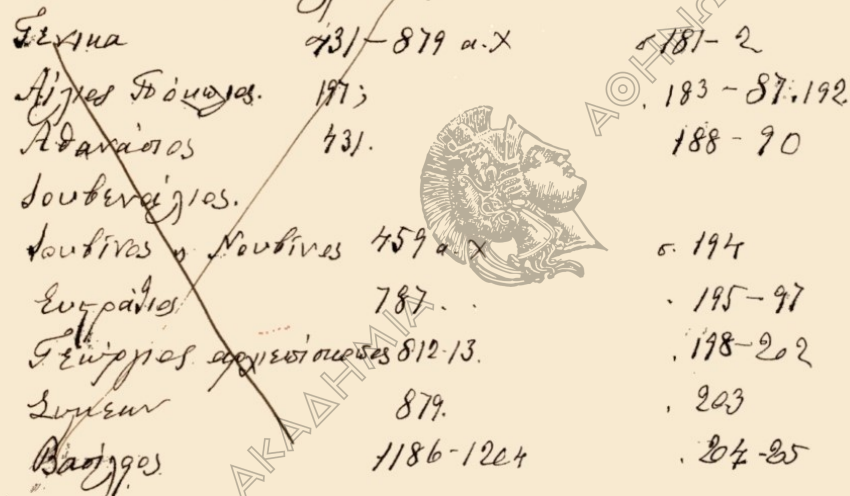 Γενικα 431-879 α.Χ σ 181-2
197; . 183-87.192
Αθανάσιος 431. 188-90
Ιουβενάλιος.
Ιουβίνος η Νουβίνος 459 α.Χ σ. 194
Ευστράτιος 787. . . 195-97
Γεώργιος αρχιεπίσκοπος 812-13. . 198-202
879. . 203
1186-1204 . 204-205
ΑΚΑΔΗΜΙΑ ΑΘΗΝΩΝ